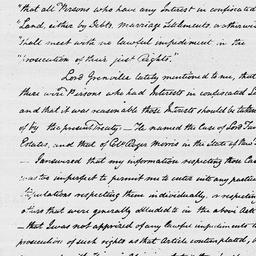 "that all Persons who have any Interest in confiscated
"Land, either by Debts, marriage Settlements, or otherwi
"shall meet with no lawful impediment in the
"prosecution of their just Rights."
Lord Grenville lately mentioned to me, that
there were Persons who had Interests in confiscated La
and that it was reasonable those Interests should be taken
of by the present Treaty — He named the Case of Lord Fair
Estates, and that of Coll Roger Morris in the State of New
— I answered that my information respecting those Cas
was too imperfect to permit me to enter into any partic
Stipulations respecting them individually, or respecting
others that were generally alluded to in the above Arti
— that I was not apprized of any lawful impediments to
prosecution of such rights as that Article contemplated,